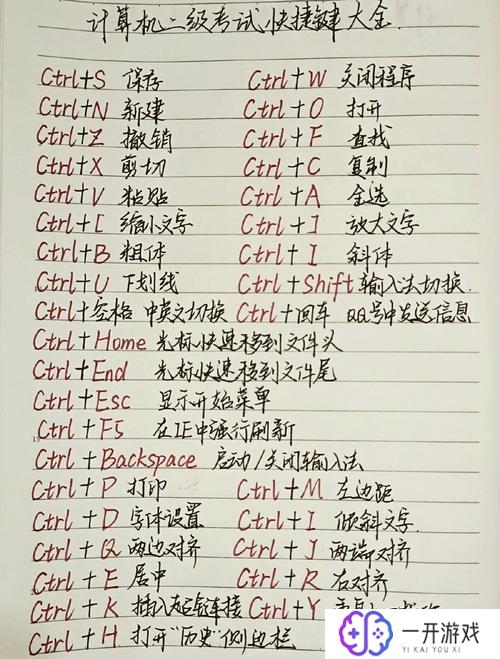 计算机二级考试快捷键大全.
Ctrl+S 保存 Ctrl+W 关闭程序
Ctrl+N 新建 Ctrl+O 打开
Ctrl+Z 撤销 Ctrl+F 查找
Ctrl+X 剪切 Ctrl+C 复制
Ctrl+V 粘贴 Ctrl+A 全选
Ctrl+[ 缩小文字 Ctrl+] 放大文字
Ctrl+B 粗体 Ctrl+I 斜体
Ctrl+U 下划线 Ctrl+Shift 输入法切换.
Ctrl+空格 中英文切换 Ctrl+回车 QQ号中发送信息
Ctrl+Home 光标快速移到文件头
Ctrl+End 光标快速移到文件尾
Ctrl+Esc 显示开始菜单
Ctrl+F5 在IE中强行刷新
Ctrl+Backspace 启动/关闭输入法
Ctrl+P 打印 Ctrl+M 左边距
Ctrl+D 字体设置 Ctrl+I 倾斜文字.
Ctrl+Q 两边对齐 Ctrl+J 两端对齐
Ctrl+E 居中 Ctrl+R 右对齐
Ctrl+K 插入超链接 Ctrl+Y
Ctrl+H 打开"历史"侧边栏
一开游戏
YI KAI YOU XI